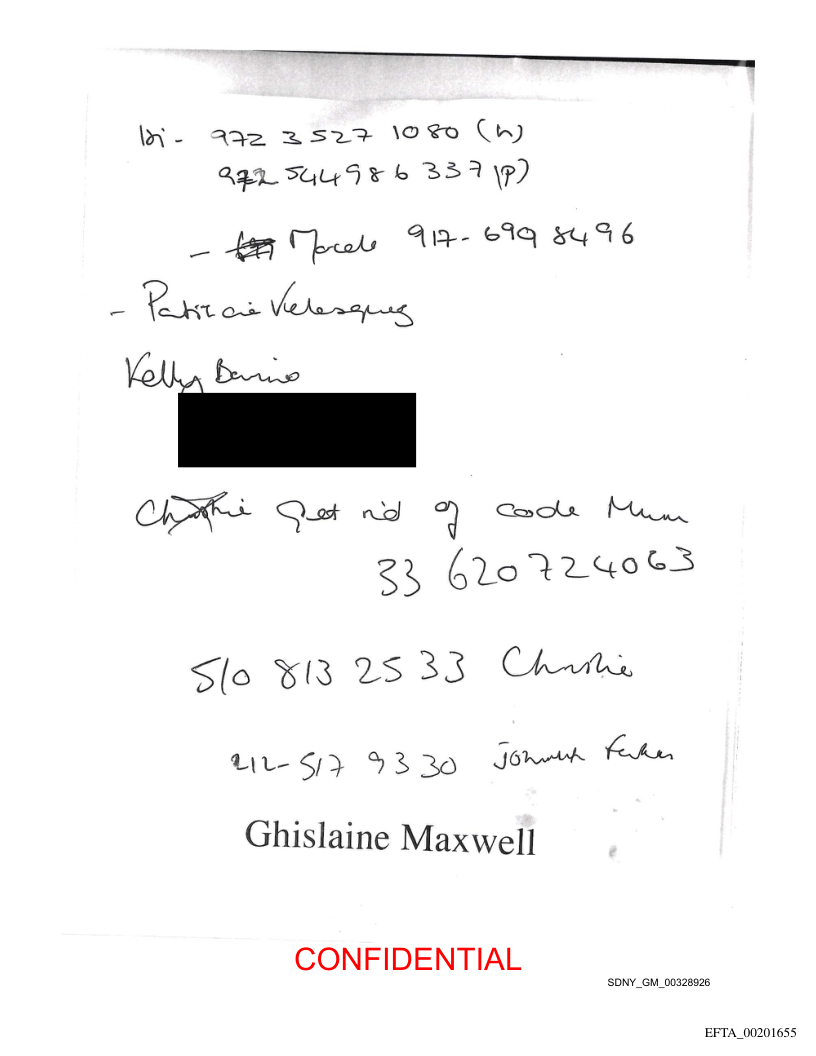 972 3 527 1080 (h)
972 544 986 337 (p)
- 917-699 8496
- Velesquez
Kelly
Christie Get rid of code Mum
33 620724063
510 813 2533 Christie
212-517 9330
Ghislaine Maxwell
CONFIDENTIAL
SDNY_GM_00328926
EFTA_00201655